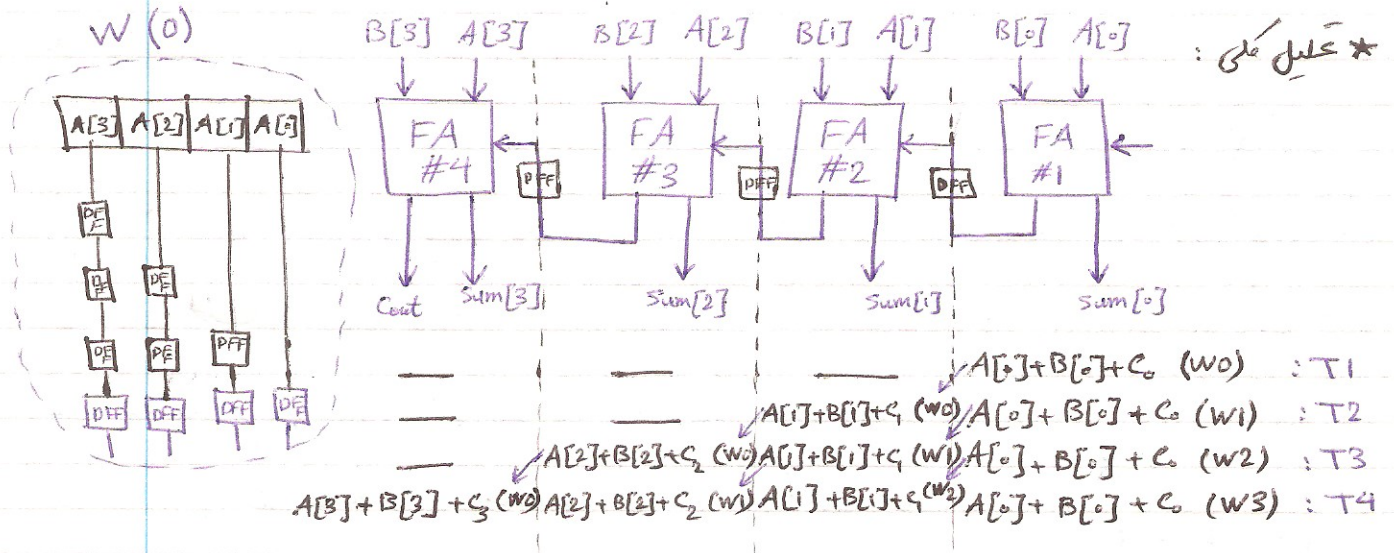 ★ تحلیل کلی :
W (0)
B[3] A[3] B[2] A[2] B[1] A[1] B[0] A[0]
A[3] A[2] A[1] A[0]
FA #4
FA #3
FA #2
FA #1
DFF DFF DFF
DFF
DFF DFF
DFF DFF DFF
DFF DFF DFF DFF
Cout Sum[3] Sum[2] Sum[1] Sum[0]
A[0]+B[0]+C0 (W0) : T1
A[1]+B[1]+C1 (W0) A[0]+B[0]+C0 (W1) : T2
A[2]+B[2]+C2 (W0) A[1]+B[1]+C1 (W1) A[0]+B[0]+C0 (W2) : T3
A[3]+B[3]+C3 (W0) A[2]+B[2]+C2 (W1) A[1]+B[1]+C1 (W2) A[0]+B[0]+C0 (W3) : T4